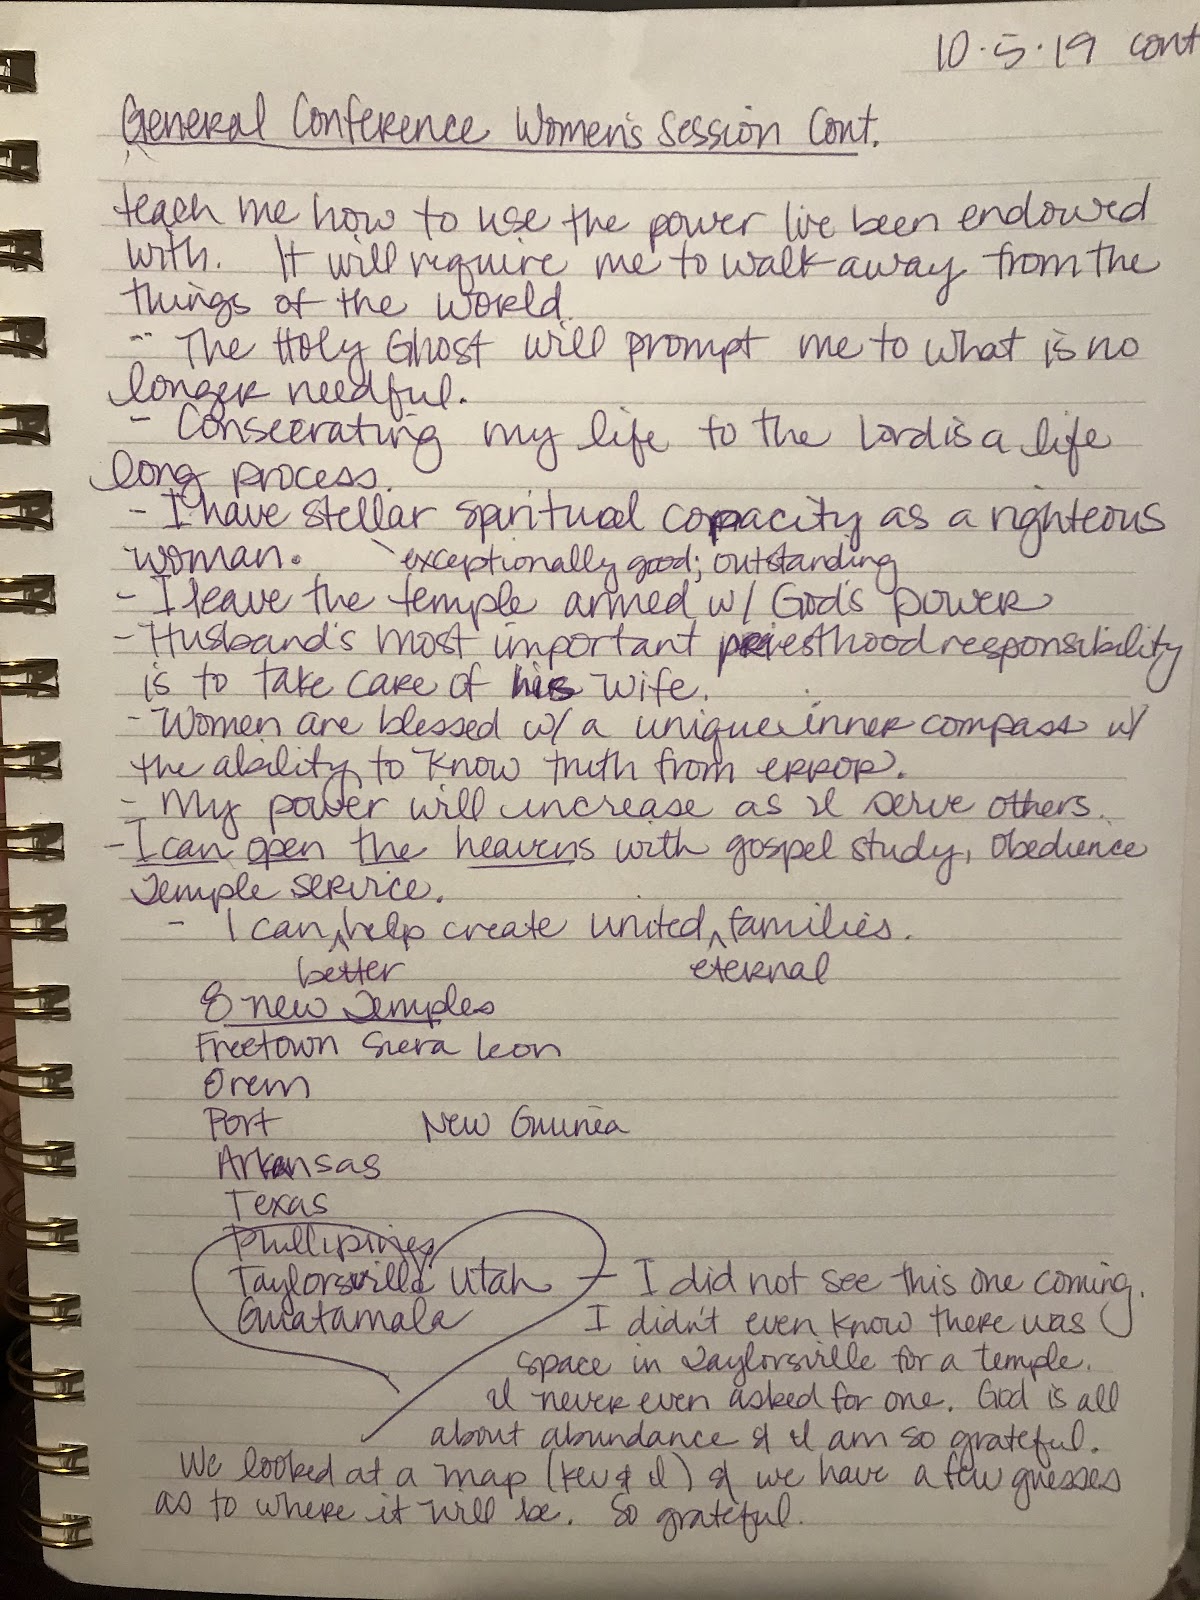 10.5.19 cont
General Conference Women's Session Cont.
teach me how to use the power I've been endowed
with. It will require me to walk away from the
things of the world.
- The Holy Ghost will prompt me to what is no
longer needful.
- Consecrating my life to the Lord is a life
long process.
- I have stellar spiritual capacity as a righteous
woman. exceptionally good; outstanding
- I leave the temple armed w/ God's power
- Husband's most important priesthood responsibility
is to take care of his wife.
- Women are blessed w/ a unique inner compass w/
the ability to know truth from error.
- My power will increase as I serve others.
- I can open the heavens with gospel study, obedience
Temple service.
- I can ^ help create united ^ families.
better eternal
8 new Temples
Freetown Siera Leon
Orem
Port New Guinea
Arkansas
Texas
Phillipines
Taylorsville Utah - I did not see this one coming.
Guatamala I didn't even know there was
space in Taylorsville for a temple.
I never even asked for one. God is all
about abundance & I am so grateful.
We looked at a map (Kev & I) & we have a few guesses
as to where it will be. So grateful.